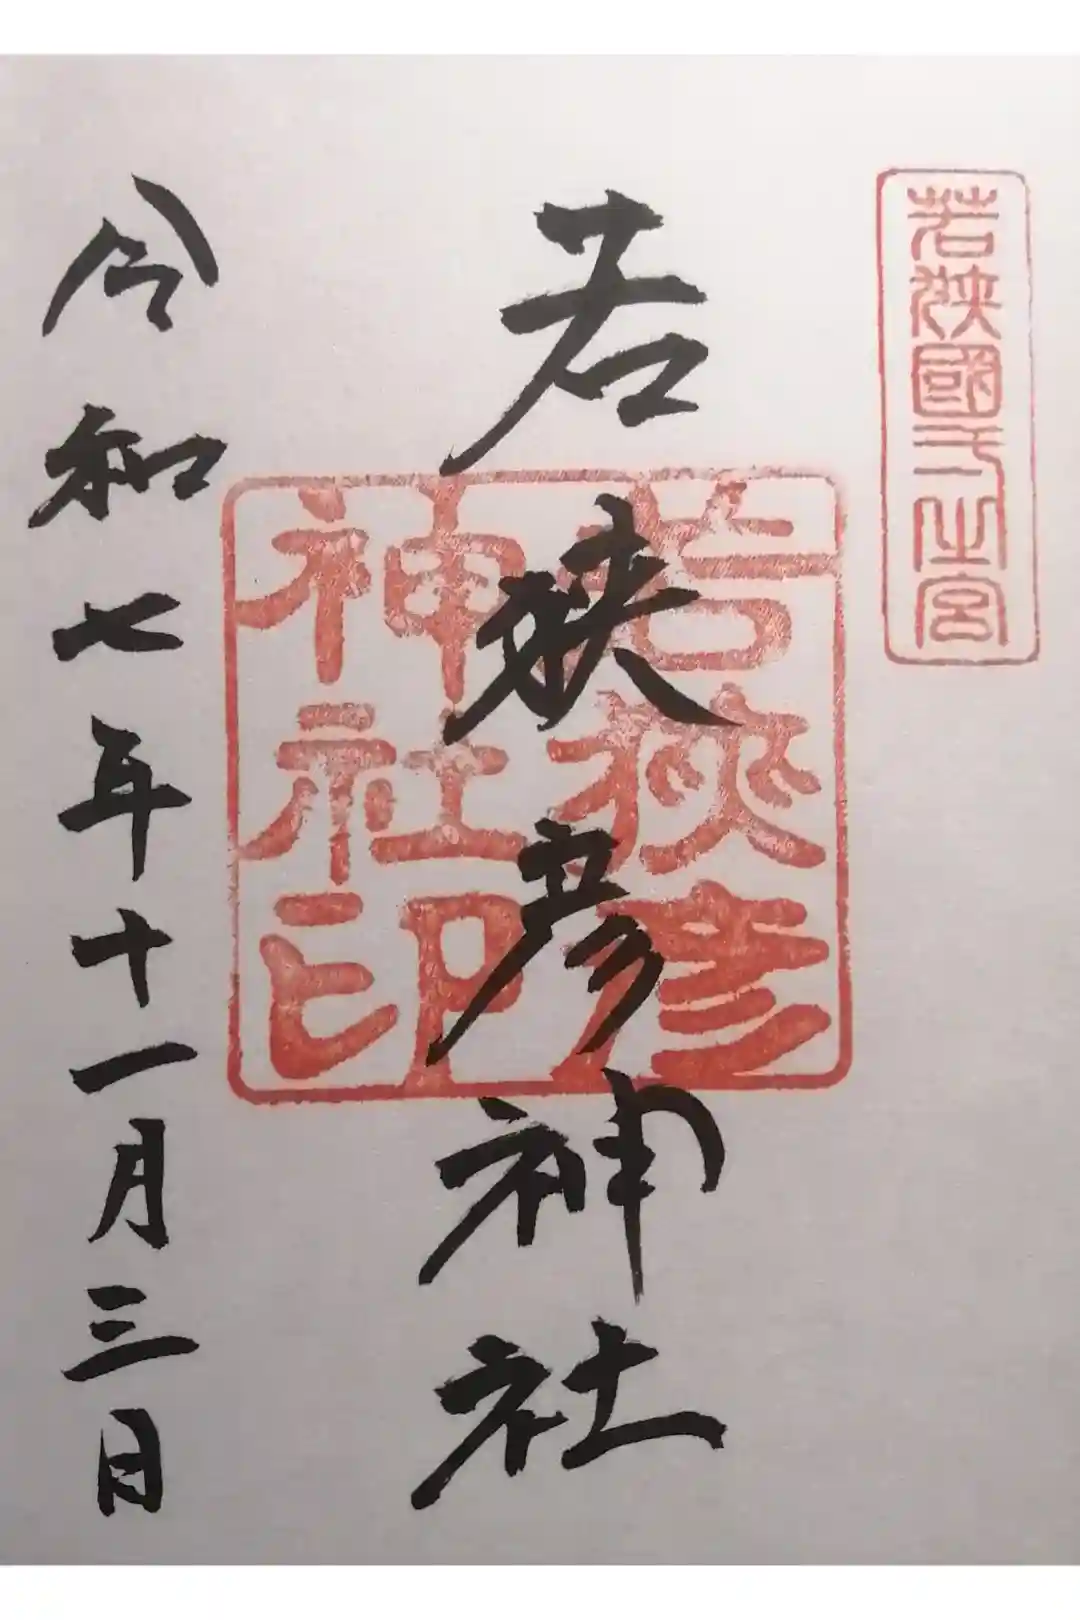 若狭國弌之宮
若狭彦神社
若狭彦
神社印
令和七年十一月三日